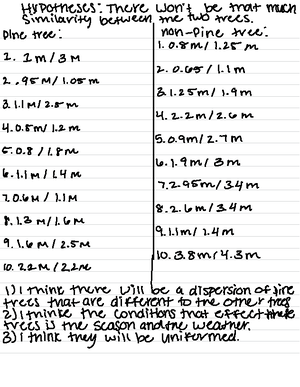 Hypotheses: There won't be that much
similarity between the two trees.
Pine tree:
non-pine tree:
1. 2m/3M
2. .95M/1.05m
3. 1.1M/2.5m
4. 0.8m/1.2m
5. 0.8/1.8m
6. 1.1M/1.4m
7. 0.6M/1.1M
8. 1.3M/1.6M
9. 1.6M/2.5M
10. 2.2M/2.2M
1. 0.8m/1.25m
2. 0.65/1.1m
3. 1.25m/1.9m
4. 2.2m/2.6m
5. 0.9m/2.7m
6. 1.9m/3m
7. 2.95m/34m
8. 2.6m/34m
9. 1.1m/1.4m
10. 3.8m/4.3m
1) I think there will be a dispersion of
trees that are different to the other trees
2) I think the conditions that effect these
trees is the season and the weather.
3) I think they will be uniformed.